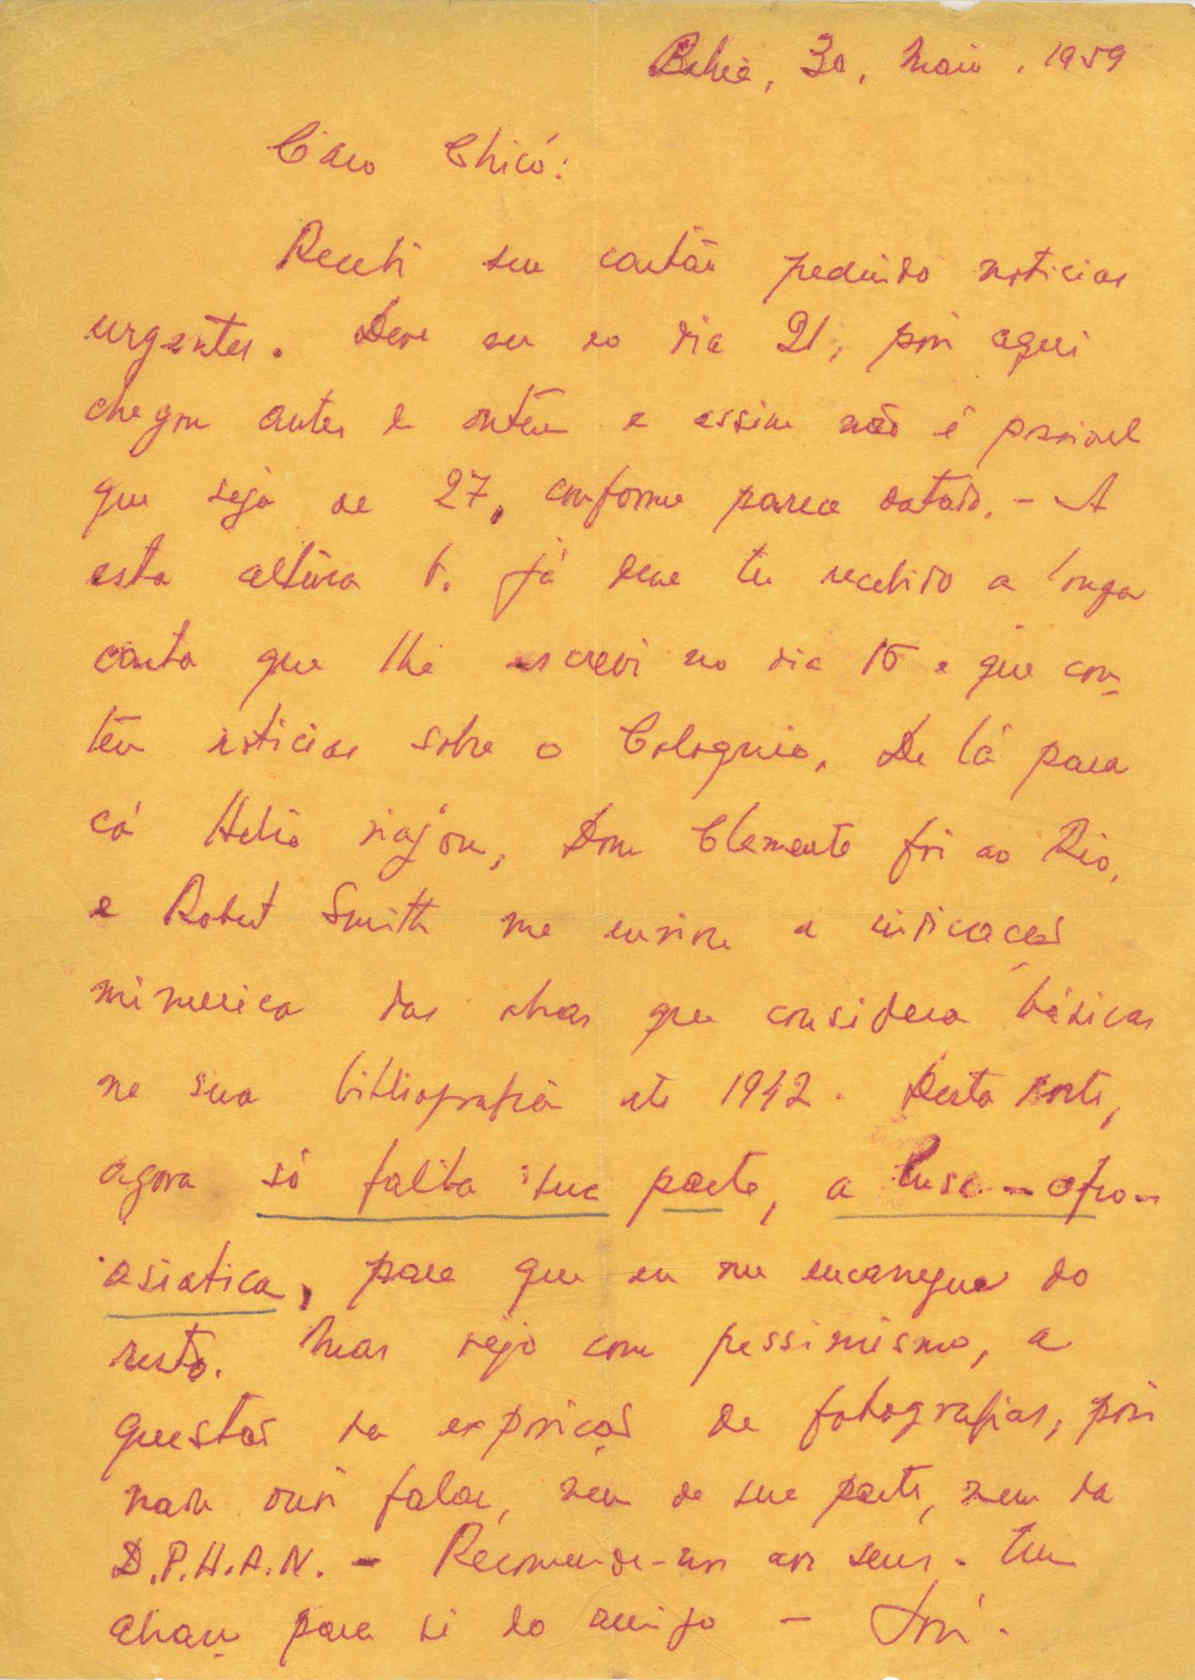 Bahia, 30, Maio, 1959
Caro Chicó:
Recebi seu cartão pedindo noticias
urgentes. Deve ser do dia 21, pois aqui
chegou antes de ontem e assim não é possivel
que seja de 27, conforme parece datado. - A
esta altura V. já deve ter recebido a longa
carta que lhe escrevi no dia 15 e que con-
têm noticias sobre o Coloquio. De lá para
cá Helio viajou, Dom Clemente foi ao Rio,
e Robert Smith me enviou a indicação
numerica das obras que considera básicas
na sua bibliografia até 1942. Desta sorte,
agora só falta sua parte, a luso-afro-
asiatica, para que eu me encarregue do
resto. Mas vejo com pessimismo, a
questão da exposição de fotografias, pois
nada ouvi falar, nem de sua parte, nem da
D.P.H.A.N. - Recomende-me aos seus. Um
abraço para si do amigo - José.